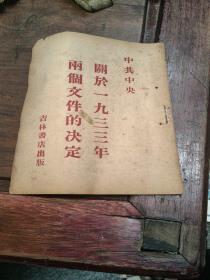 中共中央
關於一九三三年
兩個文件的决定
吉林書店出版